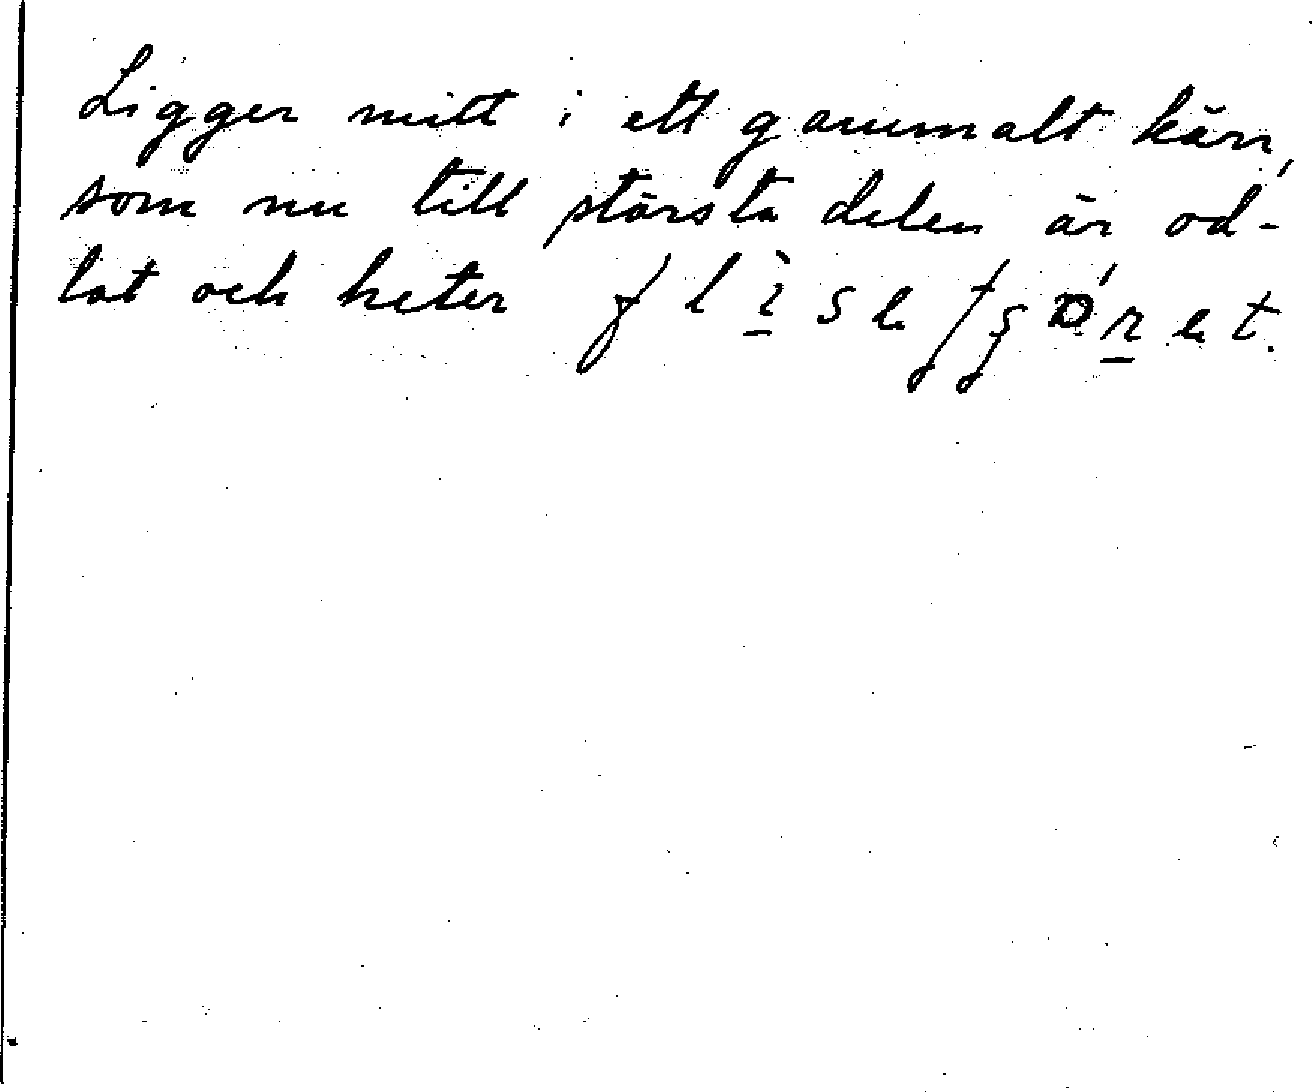 Ligger mitt i ett gammalt kärr,
som nu till största delen är od-
lat och heter